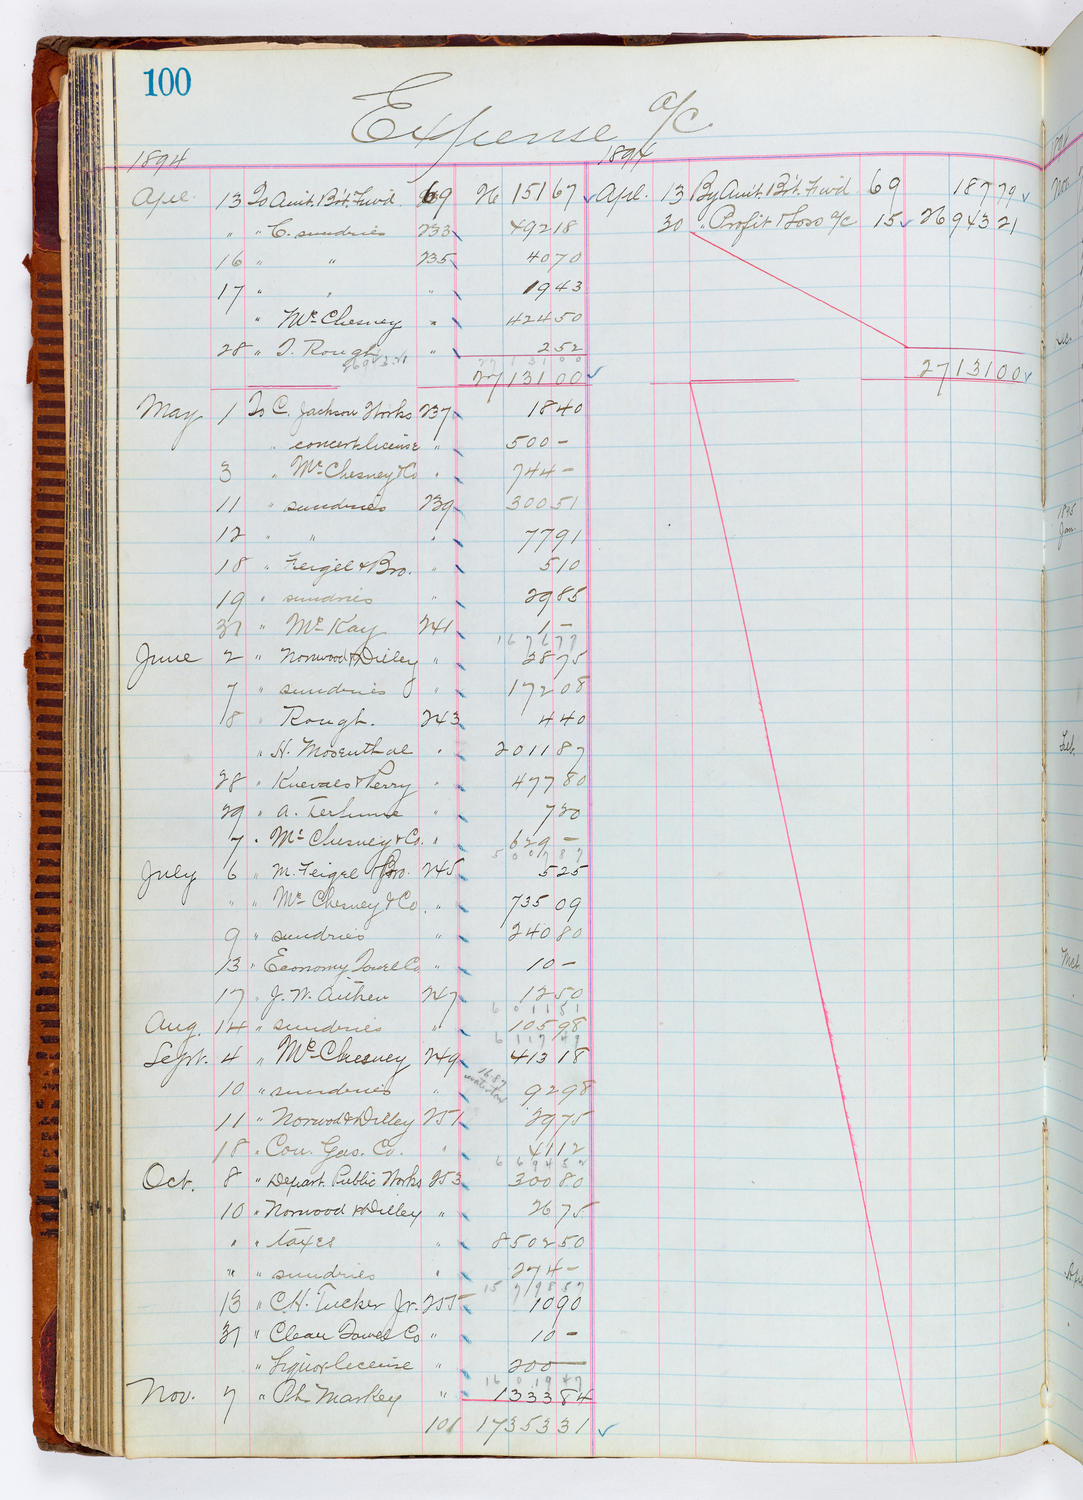 100
Expense a/c
1894 1894
April 13 To Amt. Bot. Fwd 69 26 151 67 April 13 By Amt. Bot. Fwd 69 187 79
" " C. sundries 233 492 18 30 " Profit & Loss a/c 15 26 943 21
16 " " 235 40 70
17 " " " 19 43
" McChesney " 424 50
28 " J. Rough " 2 52
26943.21 27 131 00
27 131 00 27 131 00
May 1 To C. Jackson Works 237 18 40
" concert license " 500 -
3 " McChesney & Co " 744 -
11 " sundries 239 300 51
12 " " " 77 91
18 " Feigel & Bro. " 5 10
19 " sundries " 29 85
31 " McKay 241 1 -
1676 77
June 2 " Norwood & Dilley " 28 75
7 " sundries " 172 08
18 " Rough. 243 4 40
" H. Mosenthal " 2011 87
28 " Knevals & Perry " 477 80
29 " A. Terhune " 7 20
7 " McChesney & Co. " 629 -
5007 87
July 6 " M. Feigel & Bro. 245 5 25
" " McChesney & Co. " 735 09
9 " sundries " 240 80
13 " Economy Towel Co " 10 -
17 " J. W. Aitken 247 12 50
6011 51
Aug. 14 " sundries " 105 98
6117 49
Sept. 4 " McChesney 249 413 18
16.87
10 " sundries " 92 98
11 " Norwood & Dilley 251 29 75
18 " Con. Gas. Co. " 41 12
6694 52
Oct. 8 " Depart. Public Works 253 300 80
10 " Norwood & Dilley " 26 75
" " taxes " 8502 50
" " sundries " 274 -
15 798 57
13 " C.H. Tucker Jr. 255 10 90
31 " Clean Towel Co " 10 -
" Liquor license " 200 -
16 019 47
Nov. 7 " Ph. Markey " 1333 84
101 17353 31